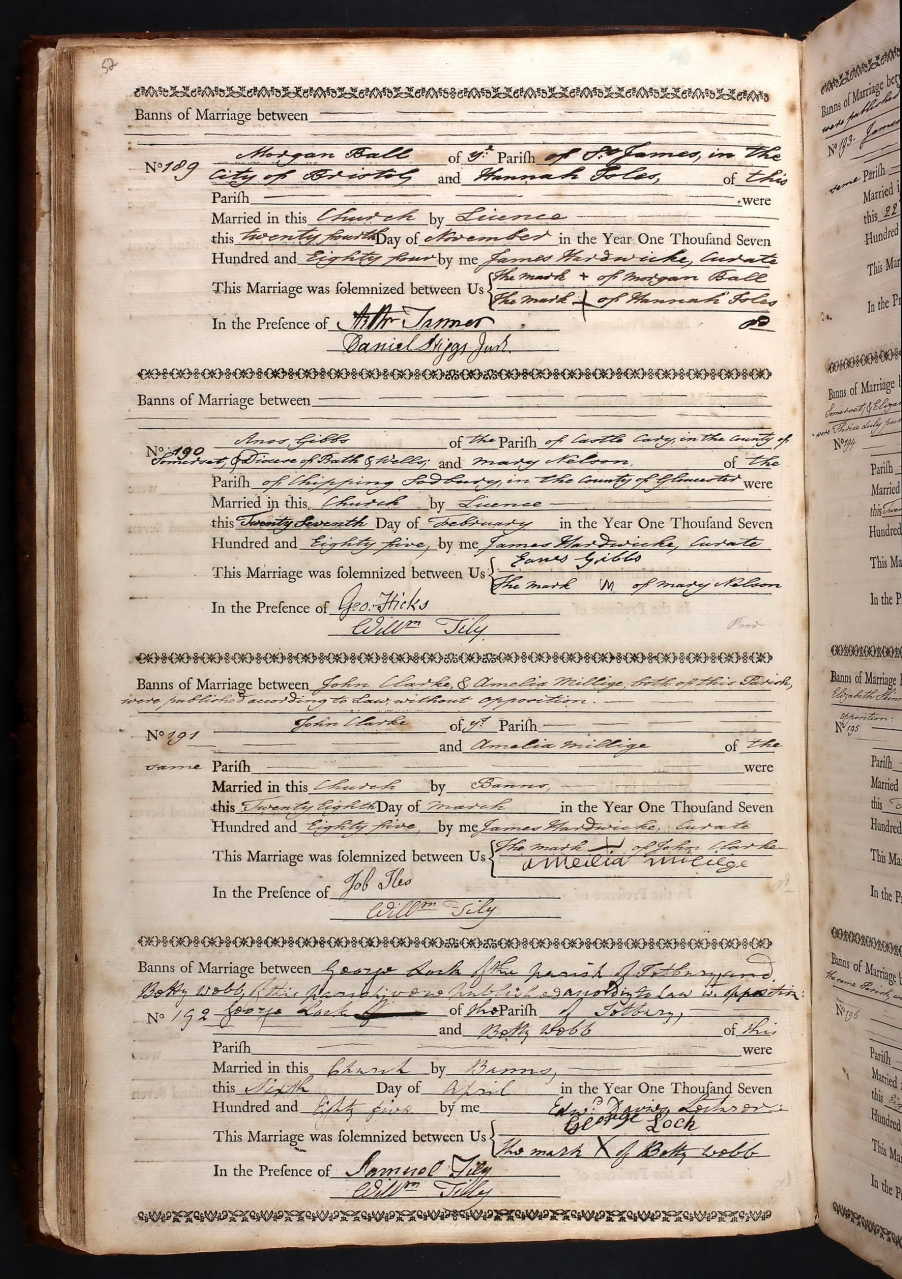 52
Banns of Marriage between
No 189 Morgan Ball of ye Pariſh of St James, in the
City of Bristol, and Hannah Isles, of this
Pariſh were
Married in this Church by Licence
this twenty fourth Day of November in the Year One Thouſand Seven
Hundred and Eighty four by me James Hardwicke, Curate
This Marriage was ſolemnized between Us The mark + of Morgan Ball
The mark + of Hannah Isles
In the Preſence of Tanner
Daniel Higgs Junr.
Banns of Marriage between
No 190 Amos, Gibbs of the Pariſh of Castle Cary, in the County of
Somerset, & Diocese of Bath & Wells, and Mary Nelson, of the
Pariſh of Chipping Sodbury, in the County of Gloucester were
Married in this Church by Licence
this Twenty Seventh Day of February in the Year One Thouſand Seven
Hundred and Eighty five, by me James Hardwicke, Curate
This Marriage was ſolemnized between Us Gibbs
The mark M of Mary Nelson
In the Preſence of Geo. Hicks
Willm Tily
Banns of Marriage between John Clarke, & Amelia Millige, both of this Parish,
were published according to Law, without opposition.
No 191 John Clarke of ye Pariſh
and Amelia Millige of the
same Pariſh were
Married in this Church by Banns,
this Twenty Eighth Day of March in the Year One Thouſand Seven
Hundred and Eighty five, by me James Hardwicke, Curate
This Marriage was ſolemnized between Us The mark + of John Clarke
amelia milige
In the Preſence of Job Iles
Willm Tily
Banns of Marriage between George Lock of the parish of Tetbury, and
Betty Webb, of this parish were published according to law wt. opposition:
No 192 George Lock of the Pariſh of Tetbury,
and Betty Webb of this
Pariſh were
Married in this Church by Banns,
this Sixth Day of April in the Year One Thouſand Seven
Hundred and Eighty five by me Edwd. Davies, Lecturer:
This Marriage was ſolemnized between Us George Loch
The mark X of Betty Webb
In the Preſence of Samuel Tily
Willm Tilly
Banns of Marriage
were published
No 193 James
same Pariſh
Married
this 22
Hundred
This Mar
In the Pr
Banns of Marriage
No 194
Pariſh
Married
this
Hundred
This Ma
In the P
Banns of Marriage
opposition
No 195
Pariſh
Married
this
Hundred
This Ma
In the P
Banns of Marriage
No 196
Pariſh
Married
this
Hundred
This M
In the P